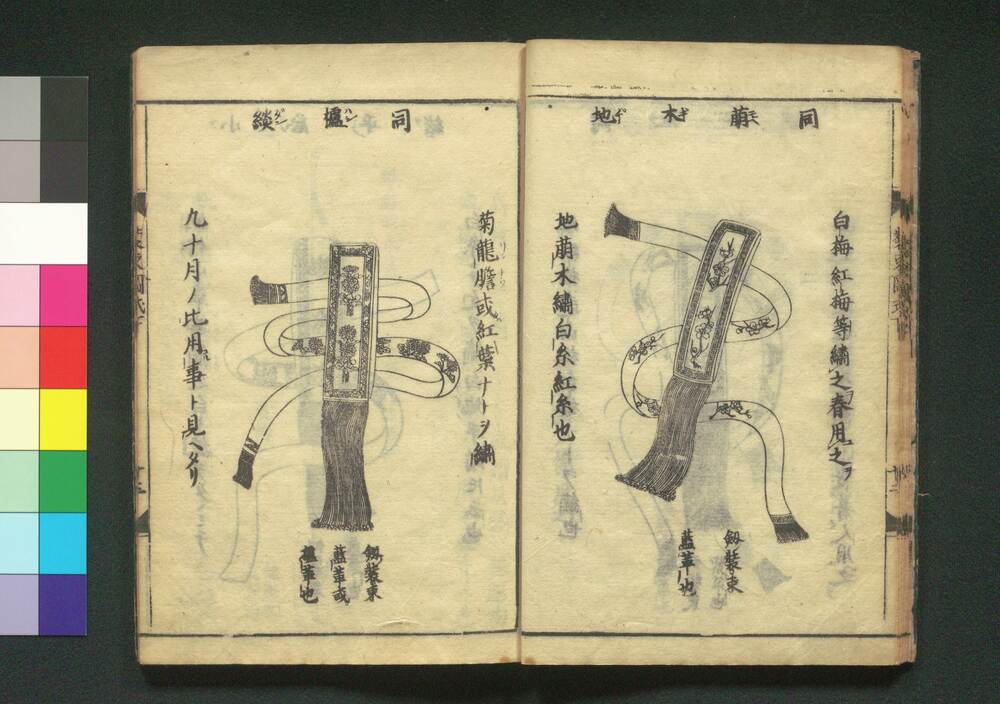 同萠木地
白梅紅梅等繍之春用之
釼装束
藍革也
地萠木繍白糸紅糸也
同櫨緂
菊龍膽或紅葉ナトヲ繍
釼装束
藍革或
櫨革也
九十月ノ比用事ト見ヘタリ